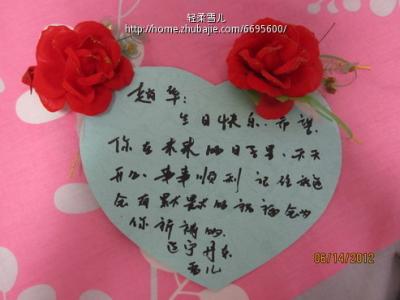 轻柔雪儿
http://home.zhubajie.com/6695600/
赵华:
生日快乐.希望.
你在未来的日子里、天天
开心.事事顺利 记住
会有默默的祝福会为
你祈祷的.
辽宁丹东
雪儿
06/14/2012